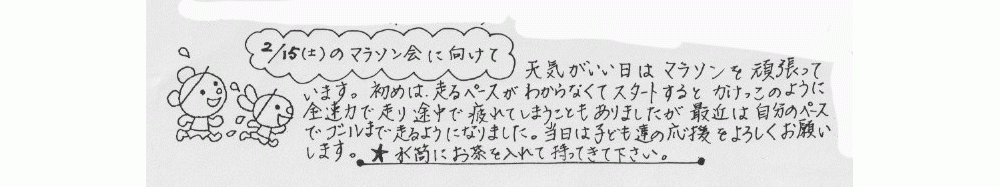 2/15(土)のマラソン会に向けて
天気がいい日はマラソンを頑張って
います。初めは、走るペースがわからなくてスタートするとかけっこのように
全速力で走り途中で疲れてしまうこともありましたが最近は自分のペース
でゴールまで走るようになりました。当日は子ども達の応援をよろしくお願い
します。★水筒にお茶を入れて持ってきて下さい。